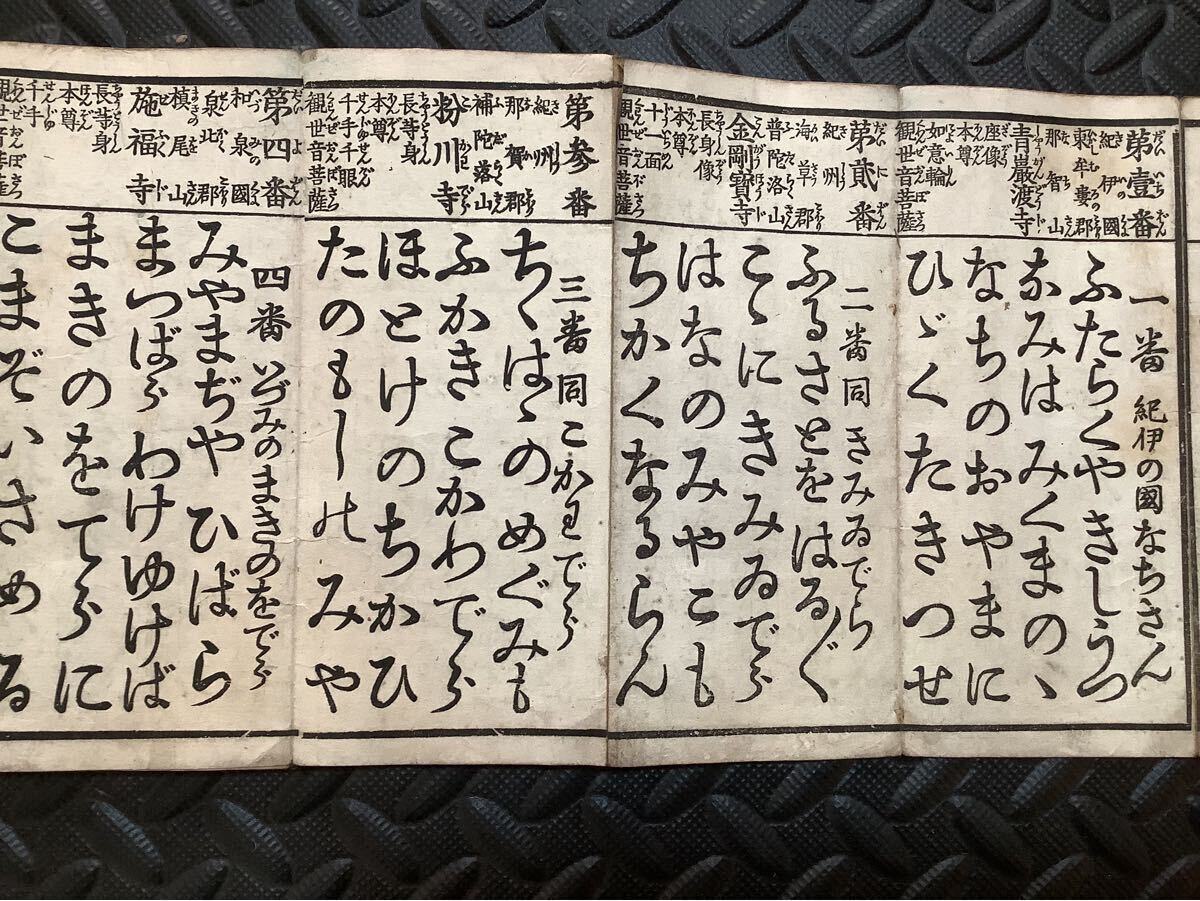 第壹番
紀伊國
東牟婁郡
那智山
青巖渡寺
座像
本尊
如意輪
観世音菩薩
一番 紀伊の國 なちさん
ふたらくや きしうつ
なみは みくまのゝ
なちのおやまに
ひゞくたきつせ
第貳番
紀州
海草郡
普陀洛山
金剛寳寺
長身像
本尊
十一面
観世音菩薩
二番 同 きみゐでら
ふるさとを はる〲
こゝに きみゐでら
はなのみやこも
ちかくなるらん
第参番
紀州
那賀郡
補陀落山
粉川寺
長等身
本尊
千手千眼
観世音菩薩
三番 同 こかわでら
ちゝはゝの めぐみも
ふかき こかわでら
ほとけのちかひ
たのもしの みや
第四番
和泉國
泉北郡
槙尾山
施福寺
長等身
本尊
千手
観世音菩薩
四番 いづみのまきのをでら
みやまぢや ひばら
まつばら わけゆけば
まきのをでらに
こまぞいさめる